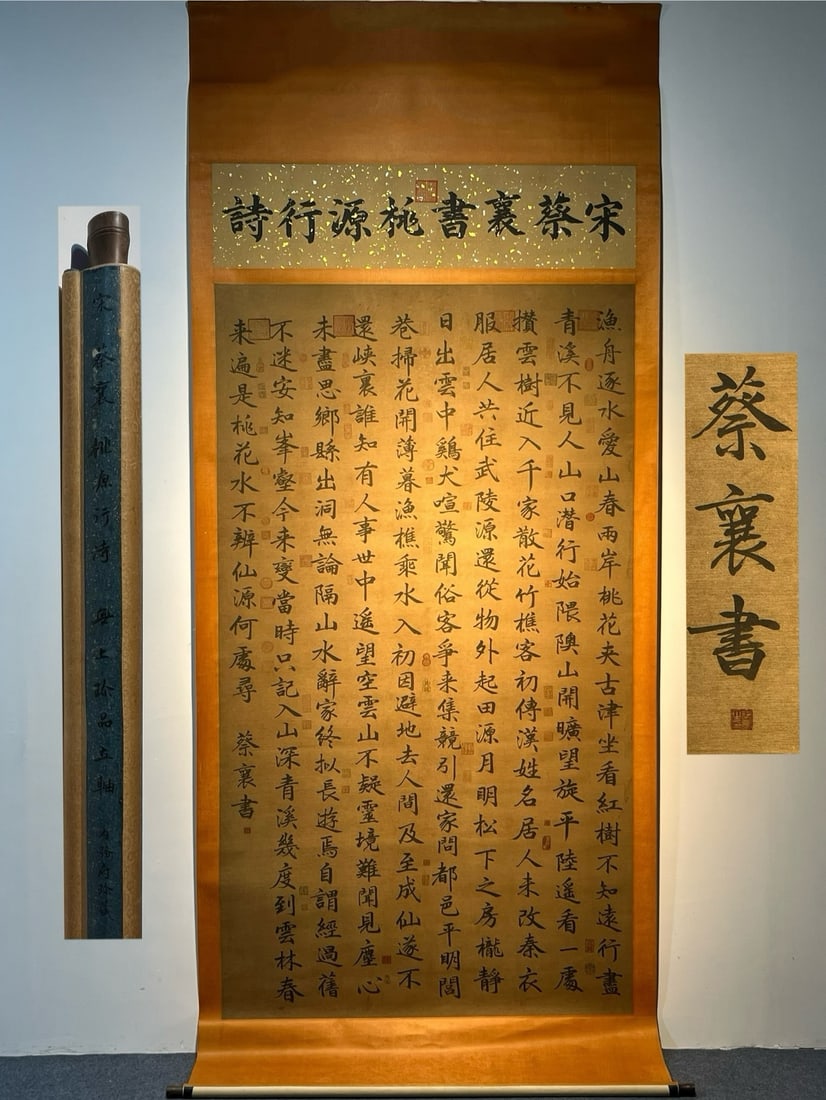 宋蔡襄書桃源行詩
漁舟逐水愛山春兩岸桃花夾古津坐看紅樹不知遠行盡
青溪不見人山口潛行始隈隩山開曠望旋平陸遙看一處
攢雲樹近入千家散花竹樵客初傳漢姓名居人未改秦衣
服居人共住武陵源還從物外起田源月明松下之房櫳靜
日出雲中鷄犬喧驚聞俗客爭来集競引還家問都邑平明閭
巷掃花開薄暮漁樵乘水入初因避地去人間及至成仙遂不
還峽襄誰知有人事世中遙望空雲山不疑靈境難聞見塵心
未盡思鄉縣出洞無論隔山水辭家終拟長遊焉自謂經過舊
不迷安知峯壑今来變當時只記入山深青溪幾度到雲林春
来遍是桃花水不辨仙源何處尋 蔡襄書
蔡襄書
宋 蔡襄 桃源行詩 無上珍品立軸